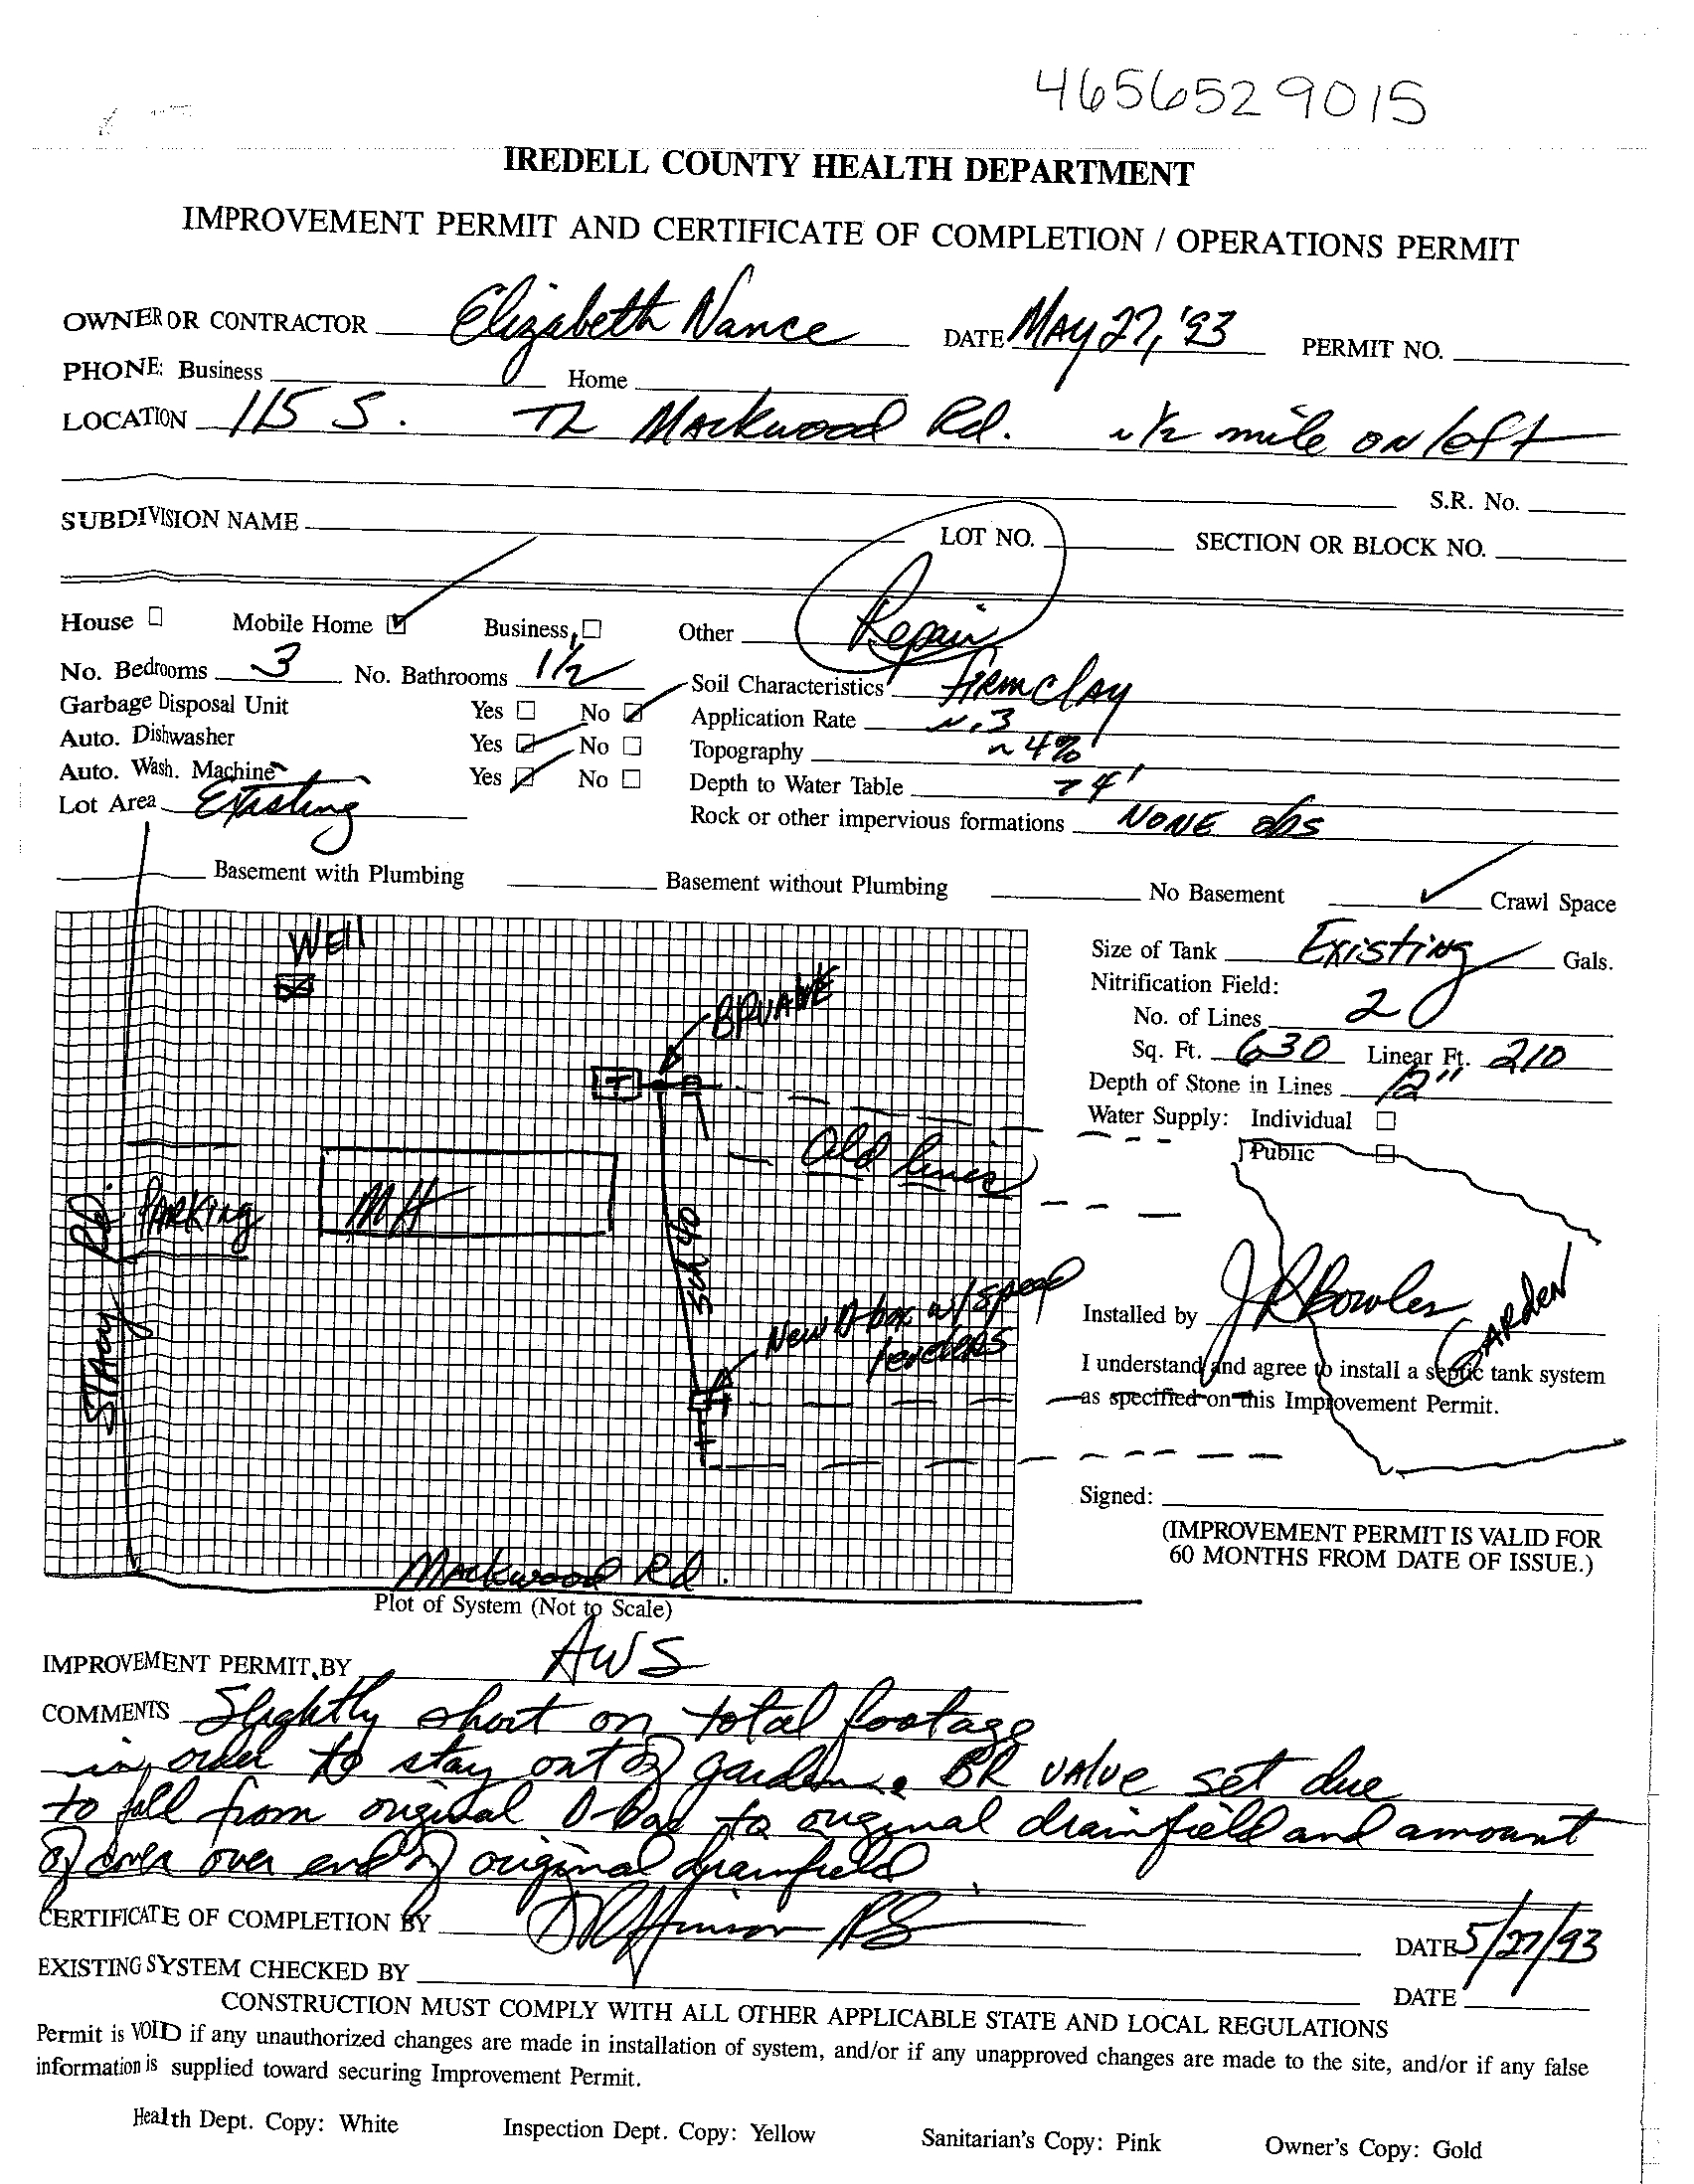 4656529015
IREDELL COUNTY HEALTH DEPARTMENT
IMPROVEMENT PERMIT AND CERTIFICATE OF COMPLETION / OPERATIONS PERMIT
OWNER OR CONTRACTOR Elizabeth Nance DATE May 27, '93 PERMIT NO.
PHONE: Business Home
LOCATION 115 S. TL Mackwood Rd. ~ 1/2 mile on left
S.R. No.
SUBDIVISION NAME LOT NO. SECTION OR BLOCK NO.
House Mobile Home Business Other Repair
No. Bedrooms 3 No. Bathrooms 1 1/2 Soil Characteristics Firm Clay
Garbage Disposal Unit Yes No Application Rate ~.3
Auto. Dishwasher Yes No Topography ~ 4%
Auto. Wash. Machine Yes No Depth to Water Table > 4'
Lot Area Existing Rock or other impervious formations NONE obs
Basement with Plumbing Basement without Plumbing No Basement Crawl Space
Well
BR VALVE
T
Old lines
MH
Parking
Rd.
Sch 40
New D-box w/ speed levelers
Mackwood Rd.
Plot of System (Not to Scale)
Size of Tank Existing Gals.
Nitrification Field:
No. of Lines 2
Sq. Ft. 630 Linear Ft. 210
Depth of Stone in Lines 12"
Water Supply: Individual
Public
Installed by J R Bowles
GARDEN
I understand and agree to install a septic tank system
as specified on this Improvement Permit.
Signed:
(IMPROVEMENT PERMIT IS VALID FOR
60 MONTHS FROM DATE OF ISSUE.)
IMPROVEMENT PERMIT BY AWS
COMMENTS Slightly short on total footage
in order to stay out of garden. BR valve set due
to fall from original D-box to original drainfield and amount
of cover over end of original drainfield.
CERTIFICATE OF COMPLETION BY RS DATE 5/27/93
EXISTING SYSTEM CHECKED BY DATE
CONSTRUCTION MUST COMPLY WITH ALL OTHER APPLICABLE STATE AND LOCAL REGULATIONS
Permit is VOID if any unauthorized changes are made in installation of system, and/or if any unapproved changes are made to the site, and/or if any false
information is supplied toward securing Improvement Permit.
Health Dept. Copy: White Inspection Dept. Copy: Yellow Sanitarian's Copy: Pink Owner's Copy: Gold